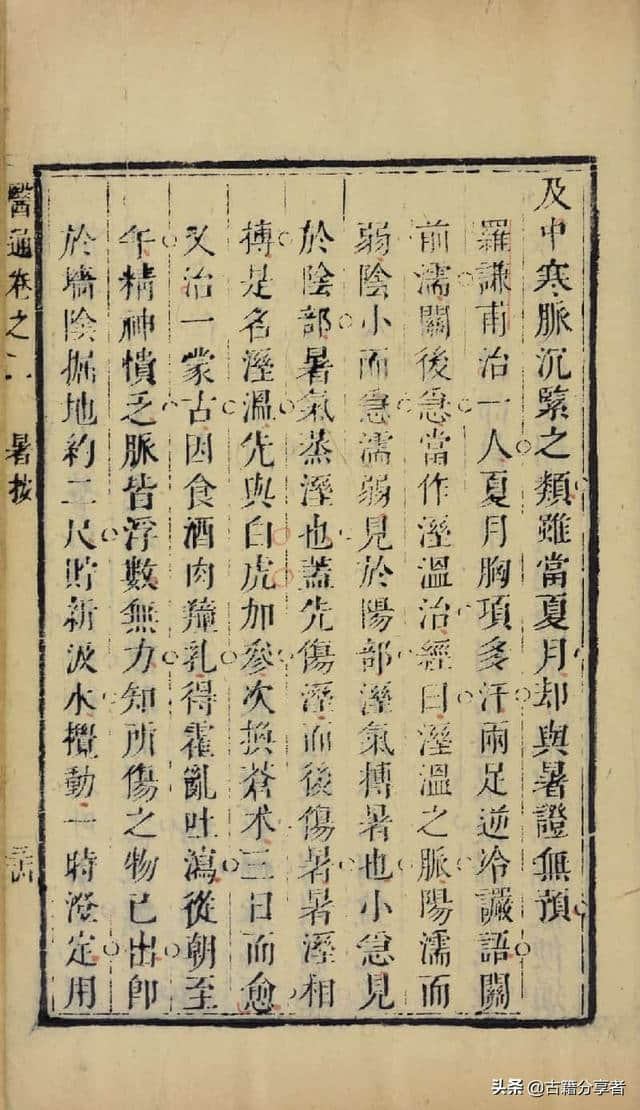 及中寒脈沉緊之類雖當夏月却與暑證無預
羅謙甫治一人夏月胸項多汗兩足逆冷讝語關
前濡關後急當作溼溫治經曰溼溫之脈陽濡而
弱陰小而急濡弱見於陽部溼氣搏暑也小急見
於陰部暑氣蒸溼也蓋先傷溼而後傷暑暑溼相
搏是名溼溫先與白虎加參次換蒼术三日而愈
又治一蒙古因食酒肉潼乳得霍亂吐瀉從朝至
午精神憒乏脈皆浮數無力知所傷之物已出卽
於墻陰掘地約二尺貯新汲水攪動一時澄定用
醫通卷之二 暑按
头条 @古籍分享者